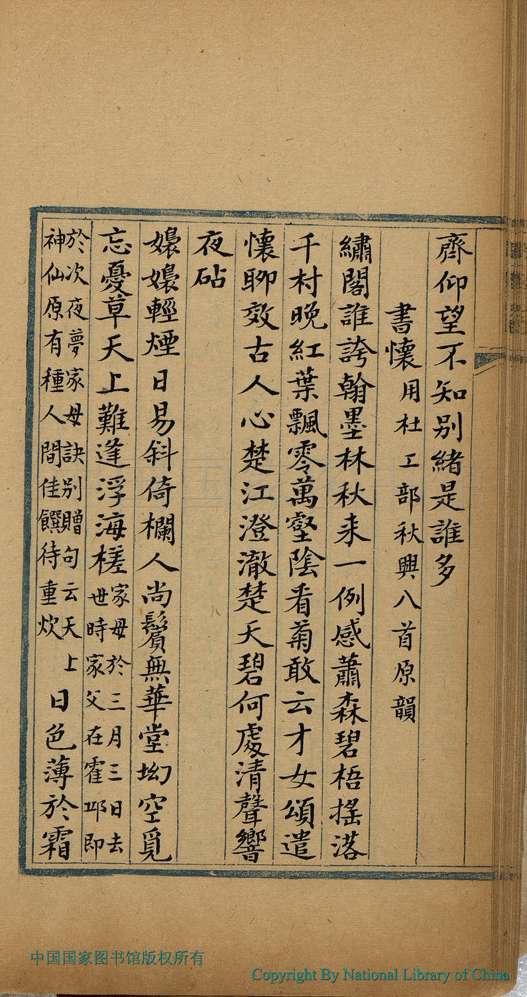 齊仰望不知别緒是誰多
書懷用杜工部秋興八首原韻
繡閣誰誇翰墨林秋来一例感蕭森碧梧摇落
千村晚紅葉飄零萬壑陰看菊敢云才女頌遣
懷聊效古人心楚江澄澈楚天碧何處清聲響
夜砧
嬝嬝輕煙日易斜倚欄人尚鬢無華堂坳空覓
忘憂草天上難逢浮海槎家母於三月三日去
世時家父在霍邱即
於次夜夢家母訣别贈句云天上
神仙原有種人間佳饌待重炊日色薄於霜
中国国家图书馆版权所有
Copyright By National Library of China